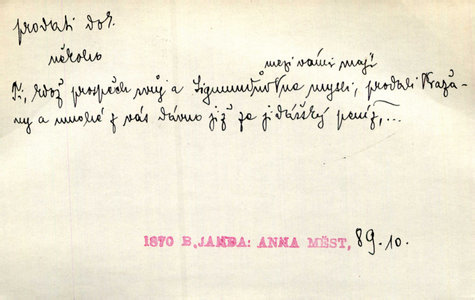 prodati dok.
někoho
mezi vámi mají
Ti, kdož prospěch můj a Sigmundův na mysli, prodali Pražany
a mnohé z vás dávno již za jidášský peníz, ...
1870 B.JANDA: ANNA MĚST, 89.10.